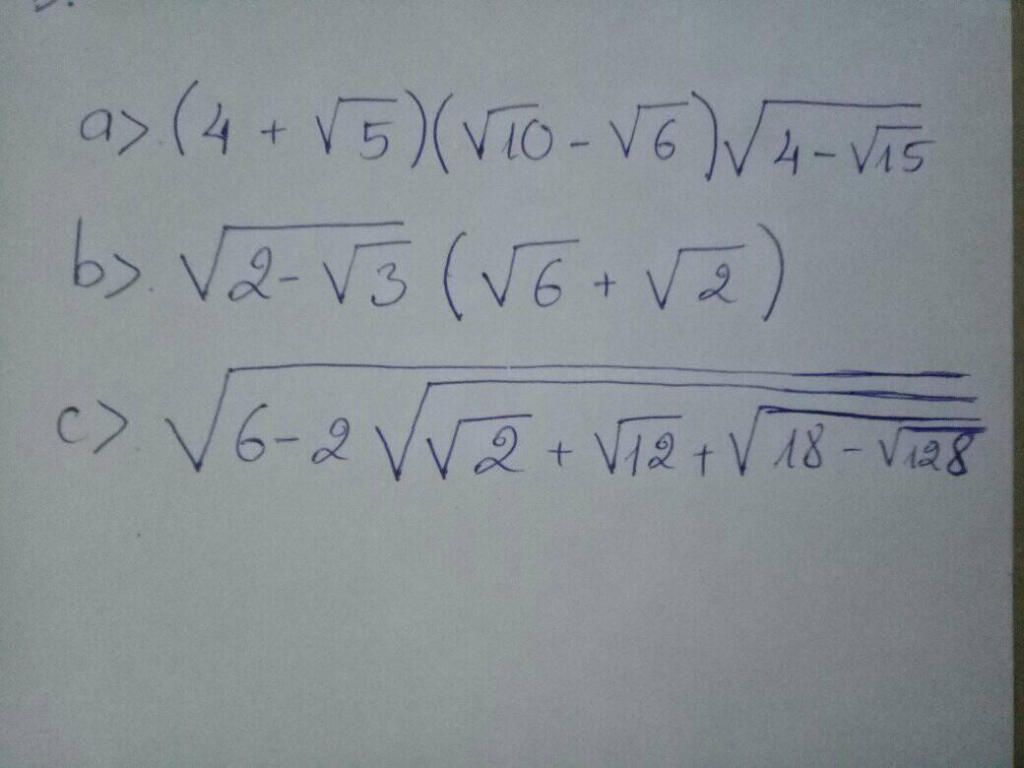 a>. (4 + √5)(√10 - √6)√(4-√15)
b>. √(2-√3) (√6 + √2)
c>. √(6-2√(√2 + √12 + √(18-√128)))